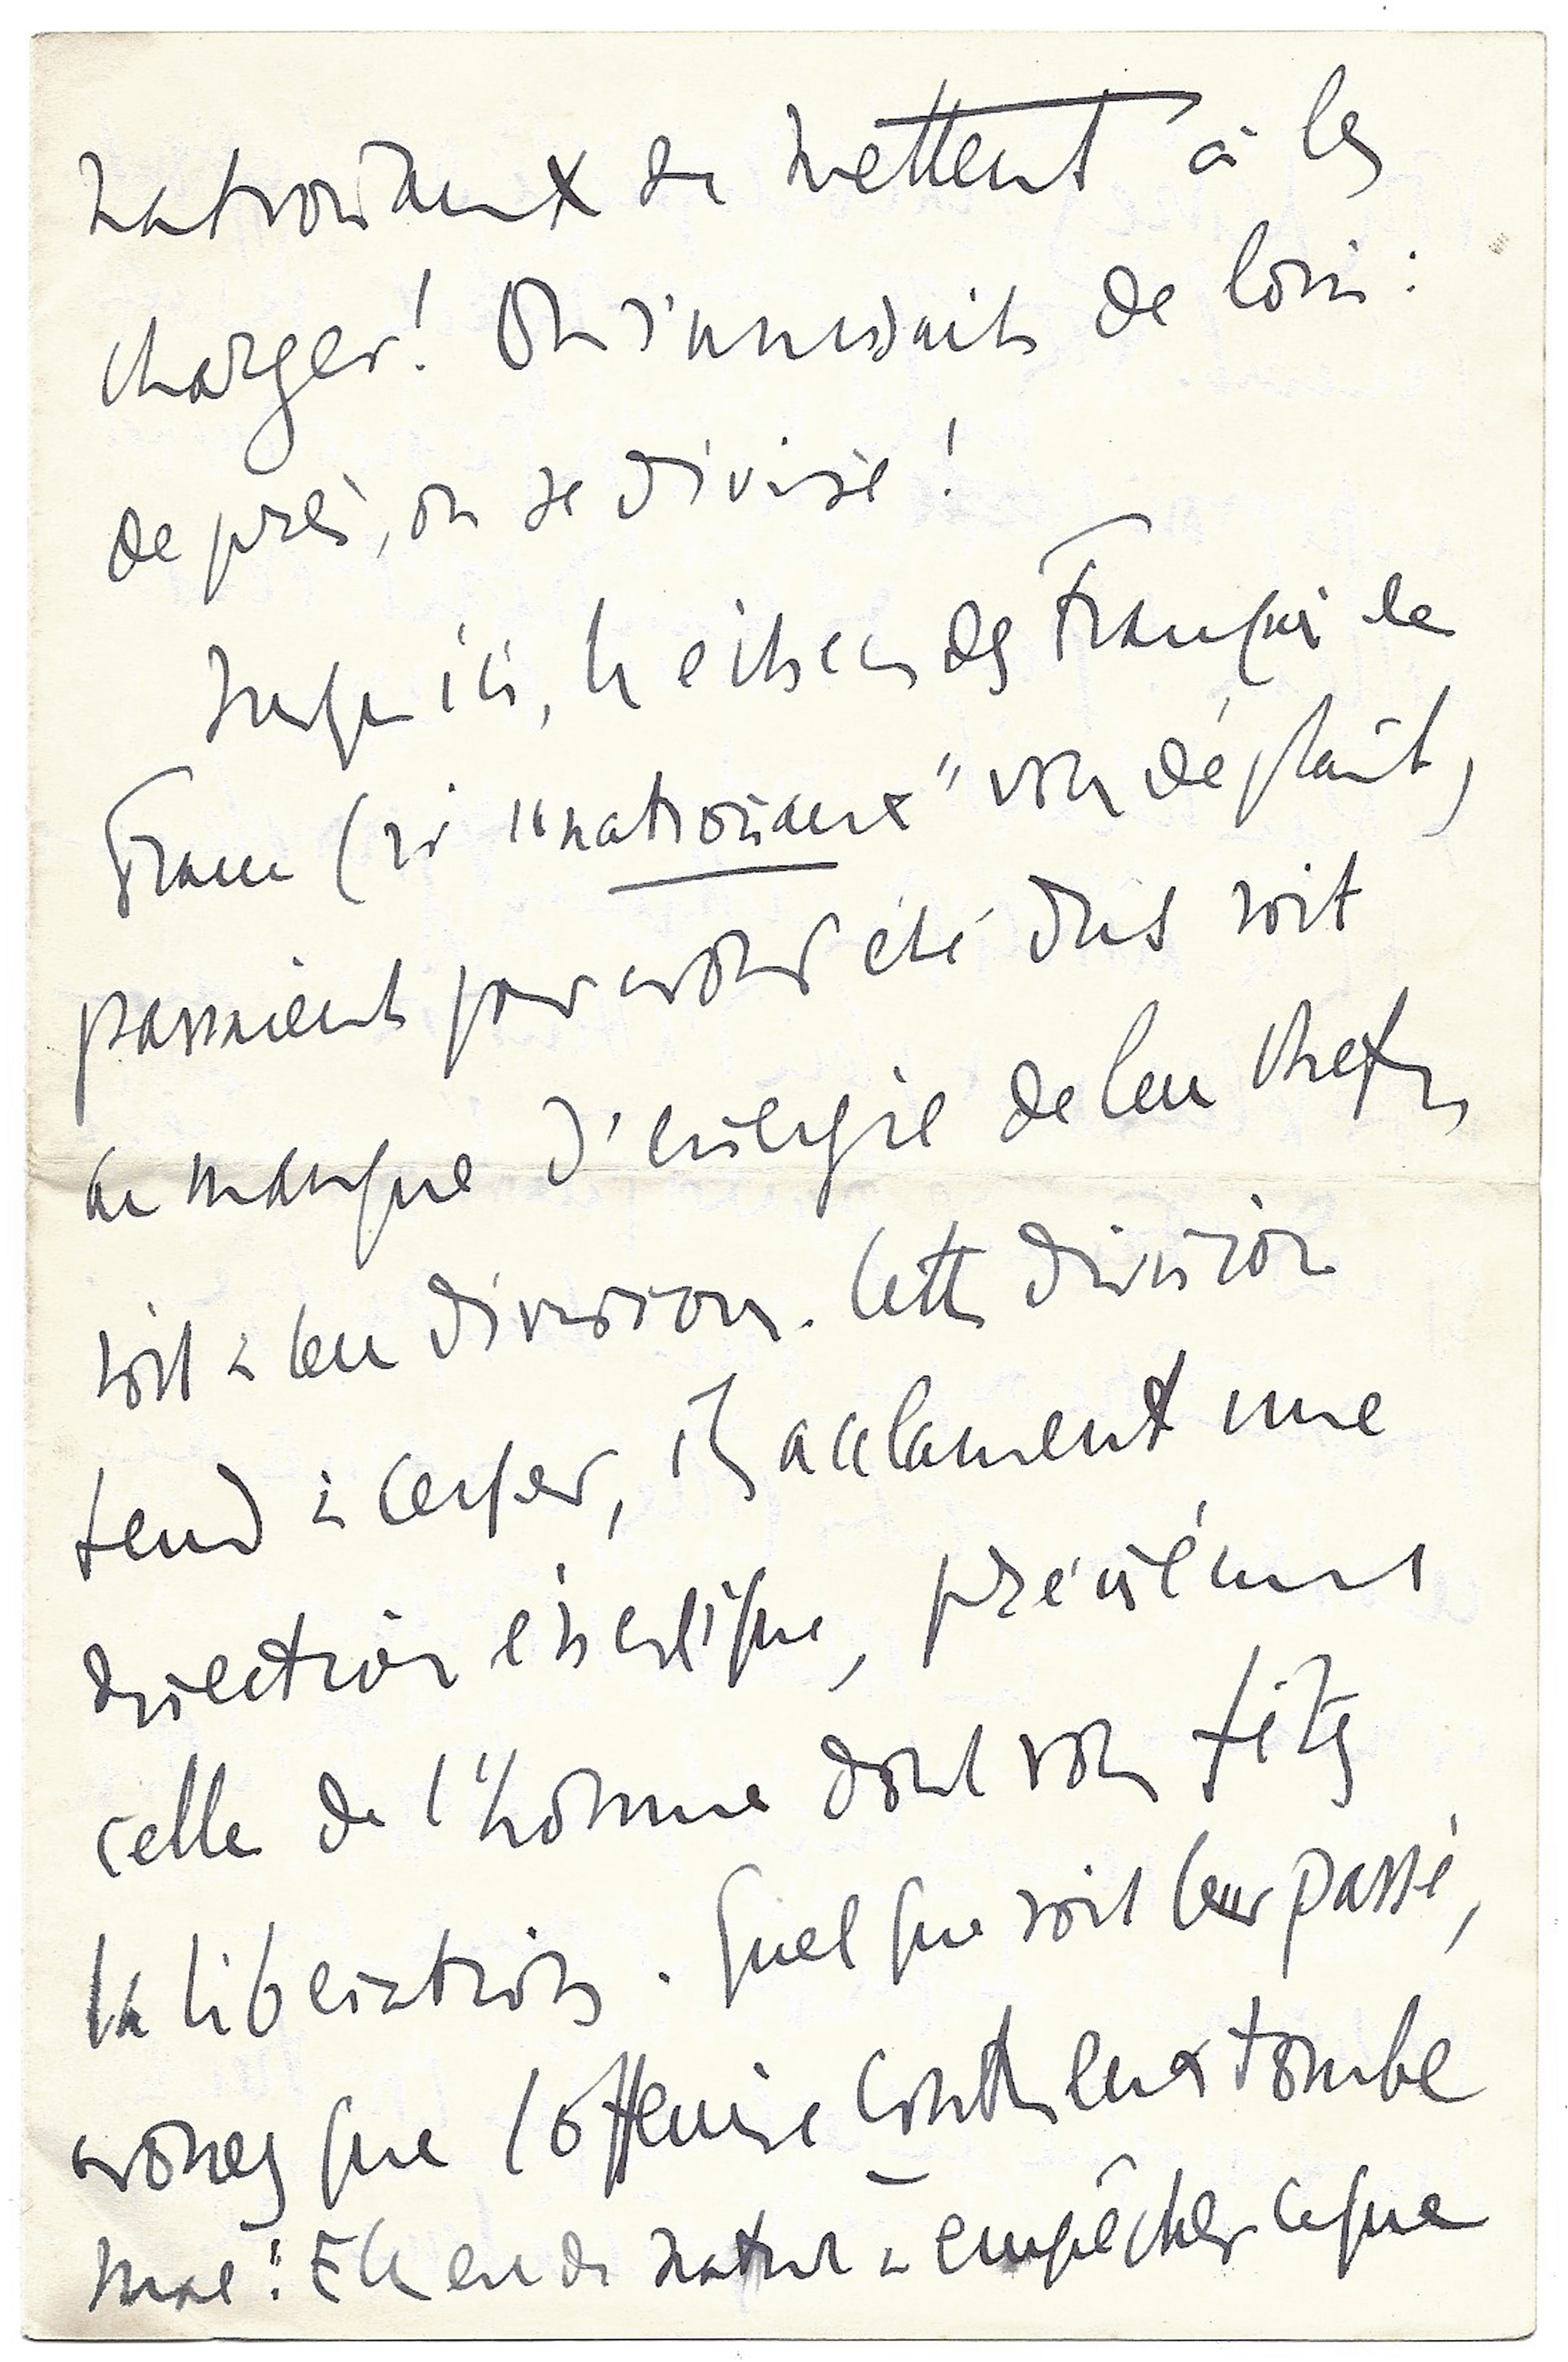 nationaux se mettent à les
charger ! On s'unissait de loin :
de près, on se divise !
Jusqu'ici, les échecs des Français de
France (si "nationaux" vous déplaît)
passaient pour avoir été dus soit
au manque d'énergie de leurs chefs,
soit à leurs divisions. Cette division
tend à cesser, ils acclament une
direction énergique, précisément
celle de l'homme dont vous fêtez
la libération. Quel que soit leur passé,
avouez que l'offensive contre eux tombe
mal : Elle est de nature à empêcher ce que